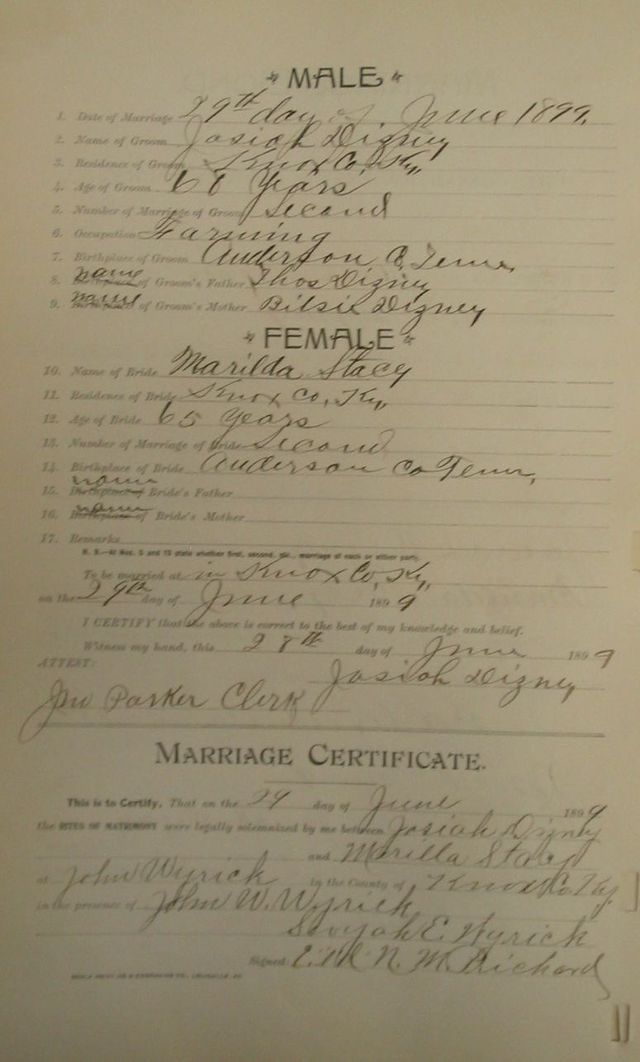 MALE
1. Date of Marriage 29th day of June 1899.
2. Name of Groom Josiah Dizney
3. Residence of Groom Knox Co, Ky,
4. Age of Groom 61 Years
5. Number of Marriage of Groom Second
6. Occupation Farming
7. Birthplace of Groom Anderson C, Tenn,
8. name Birthplace of Groom's Father Thos Dizney
9. name Birthplace of Groom's Mother Bitsie Dizney
FEMALE
10. Name of Bride Marilda Stacy
11. Residence of Bride Knox Co, Ky,
12. Age of Bride 65 Years
13. Number of Marriage of Bride Second
14. Birthplace of Bride Anderson Co Tenn,
15. name Birthplace of Bride's Father
16. name Birthplace of Bride's Mother
17. Remarks
N. B.—At Nos. 5 and 13 state whether first, second, etc., marriage of each or either party.
To be married at in Knox Co, Ky,
on the 29th day of June 1899
I CERTIFY that the above is correct to the best of my knowledge and belief.
Witness my hand, this 28th day of June 1899
ATTEST: Josiah Dizney
Jno Parker Clerk
MARRIAGE CERTIFICATE.
This is to Certify, That on the 29 day of June 1899
the RITES OF MATRIMONY were legally solemnized by me between Josiah Dizney
and Marilla Stacy
at John Wyrick in the County of Knox Co. Ky.
in the presence of John W. Wyrick
E. Wyrick
Signed N. M. Prichard